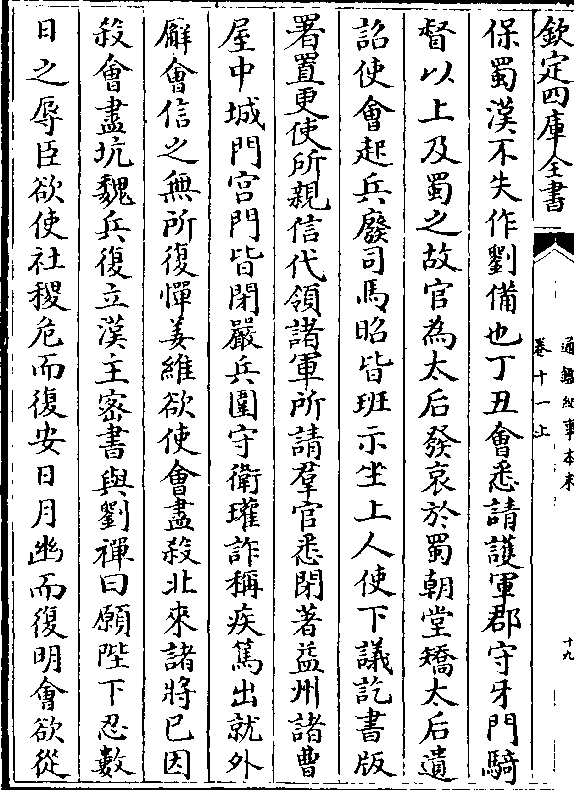 欽定四庫全書
通鑑紀事本末
卷十一上
十九
保蜀漢不失作劉備也丁丑會悉請護軍郡守牙門騎
督以上及蜀之故官為太后發哀於蜀朝堂矯太后遺
詔使會起兵廢司馬昭皆班示坐上人使下議訖書版
署置更使所親信代領諸軍所請羣官悉閉著益州諸曹
屋中城門宫門皆閉嚴兵圍守衛瓘詐稱疾篤出就外
廨會信之無所復憚姜維欲使會盡殺北來諸將已因
殺會盡坑魏兵復立漢主宻書與劉禪曰願陛下忍數
日之辱臣欲使社稷危而復安日月幽而復明會欲從